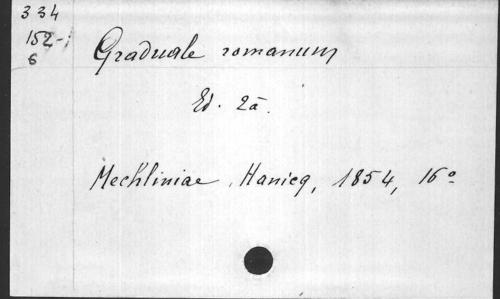 334
152-;
6
Graduale romanum
Ed. 2a.
Mechliniae, Hanicq, 1854, 16º